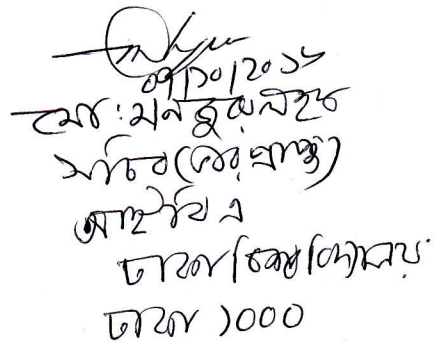 ০৭/১০/২০১৮
মো: মনজুরুল হক
সচিব (ভারপ্রাপ্ত)
আইবিএ
ঢাকা বিশ্ববিদ্যালয়
ঢাকা ১০০০